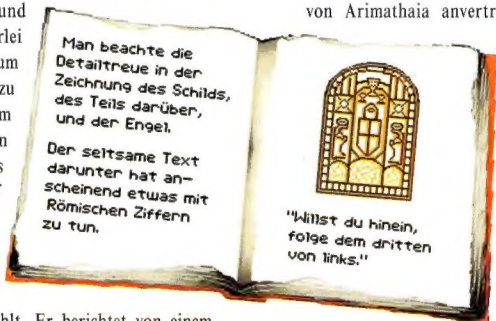 und
von Arimathaia anvertr
rlei
um
zu
m
n
s
Man beachte die
Detailtreue in der
Zeichnung des Schilds,
des Teils darüber,
und der Engel.
Der seltsame Text
darunter hat an-
scheinend etwas mit
Römischen Ziffern
zu tun.
"Willst du hinein,
folge dem dritten
von links."
hlt. Er berichtet von einem